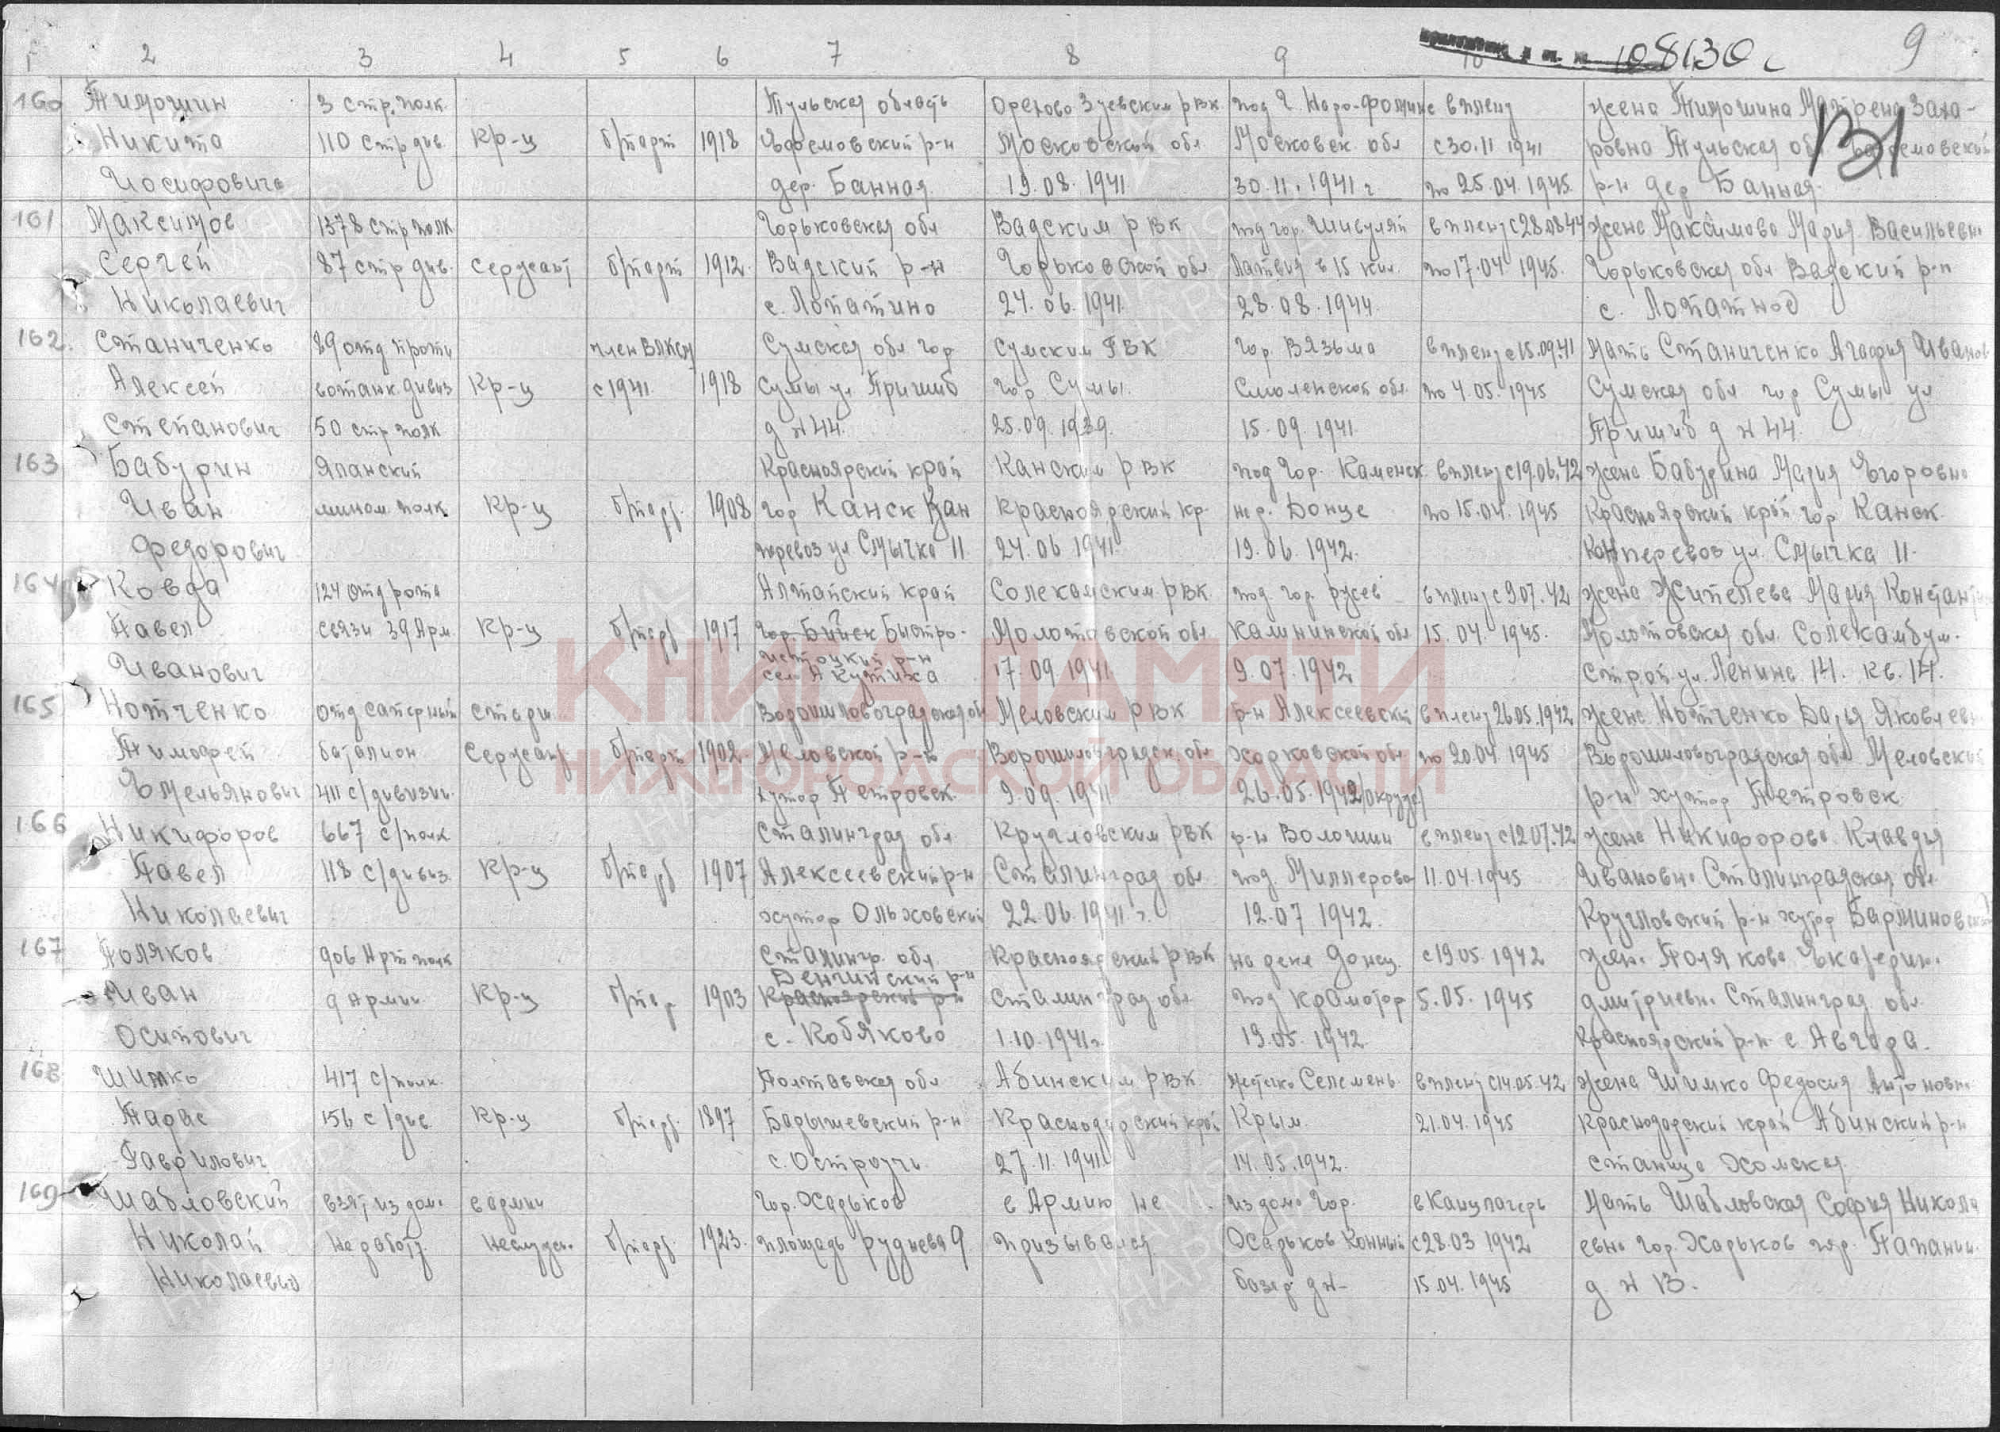 1 2 3 4 5 6 7 8 9 10 108130с 9
160 Тимошин 3 стр. полк Тульская область Орехово Зуевским рвк под г. Наро-Фоминс в плену жена Тимошина Матрена Заха-
Никита 110 стр див. кр-ц б/парт 1918 р-н Московской обл Московск. обл с 30.11 1941 ровна Тульская обл
Иосифович дер. Банная 19.08.1941 30.11.1941 г по 25.04.1945 р-н дер Банная
161 Максимов 1378 стр полк Горьковская обл Вадским рвк под гор. в плену с 28.08 44 жена Максимова Мария Васильевна
Сергей 87 стр див. сержант б/парт 1912 Вадский р-н Горьковской обл Латвия в 15 кил. по 17.04 1945. Горьковская обл Вадский р-н
Николаевич с. Лопатино 24.06.1941 28.08.1944 с.
162. Станиченко 89 отд проти член ВЛКСМ Сумская обл гор Сумским ГВК гор. Вязьма в плену с 15.09.41 мать Станиченко Агафия Иванов
Алексей вотанк. дивиз кр-ц с 1941 1918 Сумы ул Пришиб гор Сумы. Смоленской обл. по 4.05.1945 Сумская обл гор Сумы ул
Степанович 50 стр полк д н 44. 25.09.1939. 15.09.1941 Пришиб д н 44
163 Бабурин Красноярский край Канским рвк под гор. Каменск в плену с 19.06.42 жена Бабурина Мария Егоровна
Иван мином полк кр-ц б/парт. 1908 гор Канск Кан Красноярский кр. на р. Донце по 15.04.1945 Красноярский край гор Канск
Федорович перевоз ул Смычка 11 24.06 1941 19.06.1942. Кан перевоз ул. Смычка 11.
164 Ковда 124 отд рота Алтайский край Солекамским рвк под. гор. в плену с 9.07.42 жена Жителева Мария Констант
Павел связи 39 Арм. кр-ц б/парт 1917 гор. Бийск Быстро- Молотовской обл Калининской обл 15.04.1945. Молотовская обл. Солекамбум-
Иванович истоцкий р-н 17.09 1941 9.07.1942 строй ул. Ленина 14. кв. 14.
165 Нотченко отд саперный старш. Ворошиловоградская обл Меловским рвк р-н Алексеевский в плену 26.05.1942 жена Нотченко Дарья Яковлевн
Тимофей баталион сержант б/парт 1902 Меловской р-н Ворошиловградск. обл Харковской обл по 20.04 1945 Ворошиловоградская обл Меловский
Емельянович 411 с/дивизии хутор Петровск. 9.09.1941 26.05.1942 /окруж/ р-н хутор Петровск
166 Никифоров 667 с/полк Сталинград обл Кругловским рвк р-н Волошин в плену с 12.07.42 жена Никифорова Клавдия
Павел 118 с/дивиз. кр-ц б/парт 1907 Алексеевский р-н Сталинград обл под. Миллерово 11.04.1945 Ивановна Сталинградская обл
Николаевич хутор Ольховский 22.06.1941 г. 12.07 1942. Кругловский р-н хутор
167 Поляков 906 Арт полк Сталингр. обл Красноярский рвк на реке Донец. с 19.05.1942 жена Полякова Екатерин.
Иван 9 Армии кр-ц б/пар 1903 р-н Сталинград обл под Краматор 5.05.1945 Дмитриевн. Сталинград. обл
Осипович с. Кобяково 1.10.1941 г. 19.05.1942 Красноярский р-н с
168 Шимко 417 с/полк. Полтавская обл Абинским рвк в плену с 14.05.42 жена Шимко Федосия Антоновн.
Тарас 156 с/див. кр-ц б/парт. 1897 р-н Краснодарский край Крым. 21.04.1945 Краснодарский край Абинский р-н
Гаврилович с. 27.11.1941 14.05.1942. станица Холмская
169 Шабловский взят из дома в армии гор. Харьков в Армию не из дома гор. в Канцлагерь мать Шабловская София Никола
Николай не работ. не служ. б/парт. 1923. площадь Руднева 9 призывался Харьков Конный с 28.03 1942 евна гор. Харьков
Николаевич базар дн- 15.04.1945 д н 13.
КНИГА ПАМЯТИ
НИЖЕГОРОДСКОЙ ОБЛАСТИ